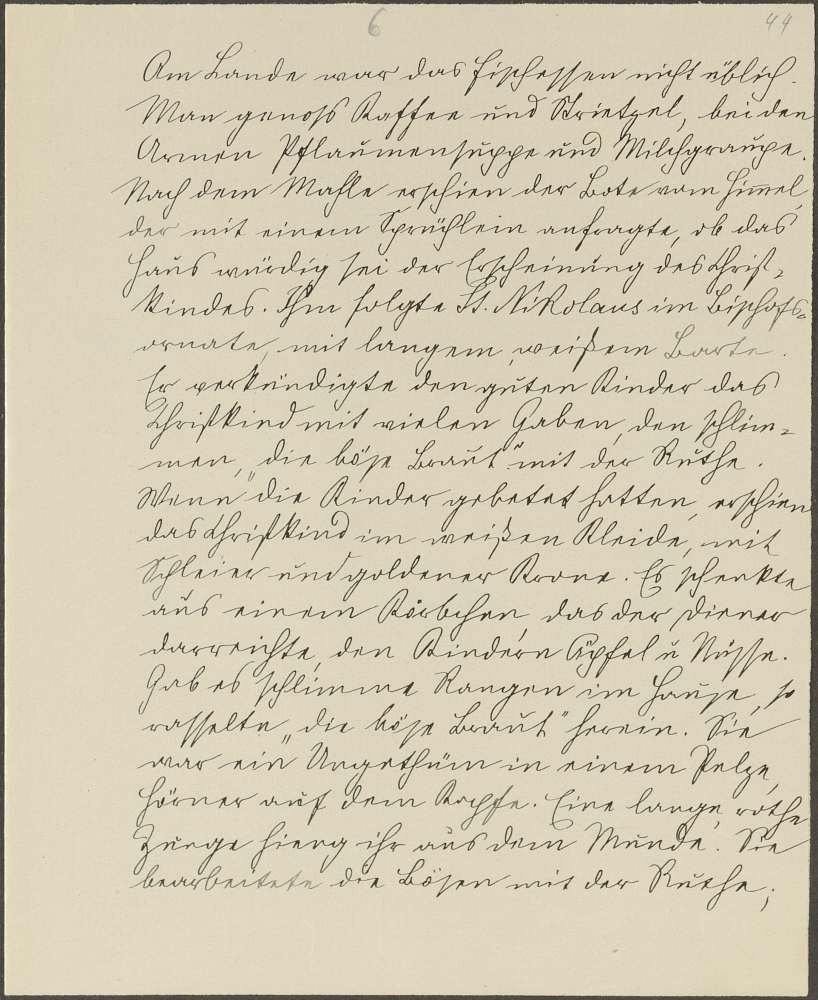 6
44
Am Lande war das Fischessen nicht üblich.
Man genoß Kaffee und Strietzel, bei den
Armen Pflaumensuppe und Milchgraupe.
Nach dem Mahle erschien der Bote vom Him̅el,
der mit einem Sprüchlein anfragte, ob das
Haus würdig sei der Erscheinung des Christ-
kindes. Ihm folgte St. Nikolaus im Bischofs-
ornate, mit langem, weißem Barte.
Er verkündigte den guten Kinder das
Christkind mit vielen Gaben, den schlim-
men, „die böse Braut" mit der Ruthe.
Wenn die Kinder gebetet hatten, erschien
das Christkind im weißen Kleide, mit
Schleier und goldener Krone. Es schenkte
aus einem Körbchen, das der Diener
darreichte, den Kindern Äpfel u Nüsse.
Gab es schlimme Rangen im Hause, so
rasselte „die böse Braut" herein. Sie
war ein Ungethüm in einem Pelze,
Hörner auf dem Kopfe. Eine lange, rothe
Zunge hieng ihr aus dem Munde. Sie
bearbeitete die Bösen mit der Ruthe;